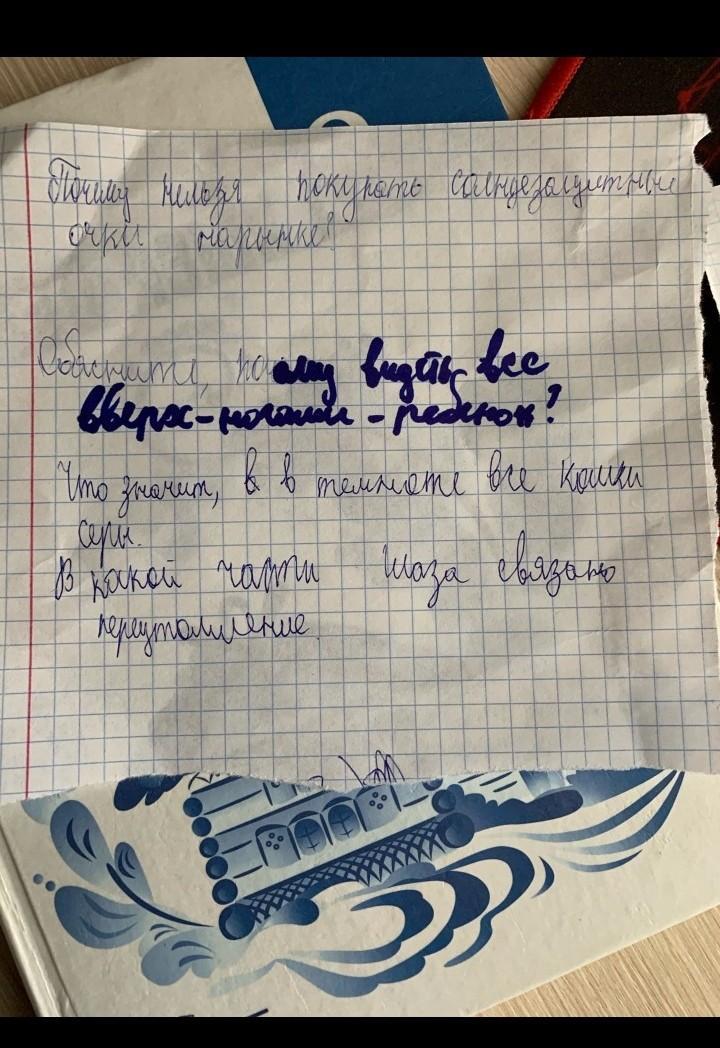 Почему нельзя покупать солндезащитные
очки нарынке?
Обясните, почему видеть все
вверх-ногами-ребенок?
Что значит, в в темноте все кошки
серы.
В какой части глаза связано
переутомление.